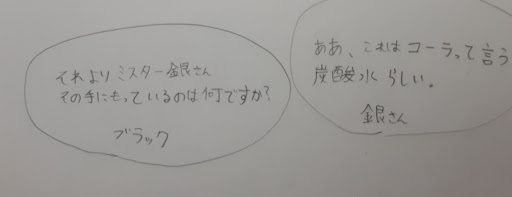 それよりミスター銀さん
その手にもっているのは何ですか?
ブラック
ああ、これはコーラって言う
炭酸水らしい。
銀さん